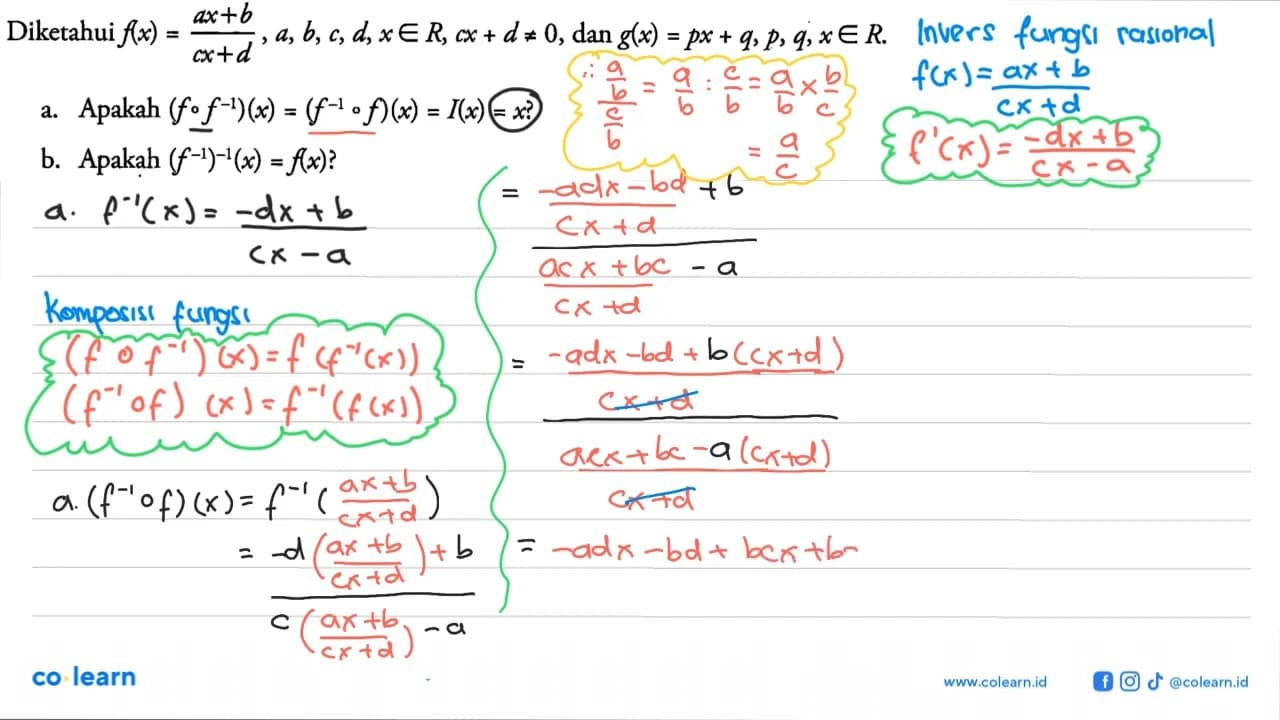 Diketahui f(x) = (ax+b)/(cx+d), a, b, c, d, x ∈ R, cx + d ≠ 0, dan g(x) = px + q, p, q, x ∈ R.
a. Apakah (f∘f⁻¹)(x) = (f⁻¹∘f)(x) = I(x) = x?
b. Apakah (f⁻¹)⁻¹(x) = f(x)?
∴ (a/b)/(c/b) = a/b : c/b = a/b × b/c
= a/c
Invers fungsi rasional
f(x) = (ax + b)/(cx + d)
f'(x) = (-dx + b)/(cx - a)
a. f⁻¹(x) = (-dx + b)/(cx - a)
Komposisi fungsi
(f o f⁻¹)(x) = f(f⁻¹(x))
(f⁻¹ o f)(x) = f⁻¹(f(x))
a. (f⁻¹ o f)(x) = f⁻¹((ax+b)/(cx+d))
= (-d((ax+b)/(cx+d)) + b)/(c((ax+b)/(cx+d)) - a)
= ((-adx - bd)/(cx + d) + b)/((acx + bc)/(cx + d) - a)
= ((-adx - bd + b(cx+d))/(cx+d))/((acx + bc - a(cx+d))/(cx+d))
= -adx - bd + bcx + b
co learn
www.colearn.id
@colearn.id